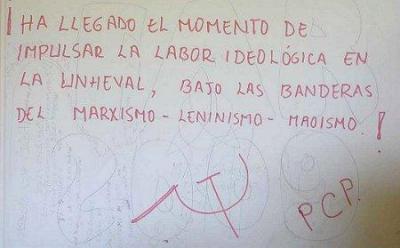 ¡HA LLEGADO EL MOMENTO DE
IMPULSAR LA LABOR IDEOLÓGICA EN
LA UNHEVAL, BAJO LAS BANDERAS
DEL MARXISMO - LENINISMO - MAOISMO!
PCP.